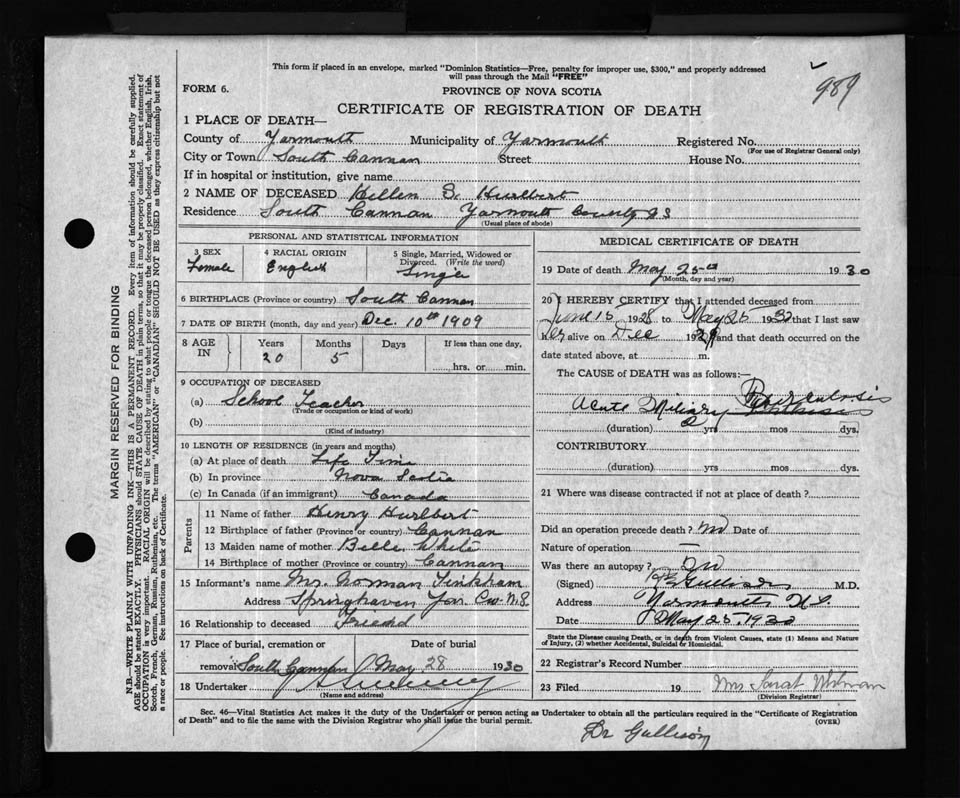 This form if placed in an envelope, marked "Dominion Statistics—Free, penalty for improper use, $300," and properly addressed
will pass through the Mail "FREE"
989
FORM 6.
PROVINCE OF NOVA SCOTIA
CERTIFICATE OF REGISTRATION OF DEATH
1 PLACE OF DEATH—
County of Yarmouth Municipality of Yarmouth Registered No.
(For use of Registrar General only)
City or Town South Cannan Street House No.
If in hospital or institution, give name
2 NAME OF DECEASED Hellen S. Hurlbert
Residence South Cannan Yarmouth County NS
(Usual place of abode)
PERSONAL AND STATISTICAL INFORMATION
3 SEX
Female
4 RACIAL ORIGIN
English
5 Single, Married, Widowed or
Divorced. (Write the word)
Single
6 BIRTHPLACE (Province or country) South Cannan
7 DATE OF BIRTH (month, day and year) Dec. 10th 1909
8 AGE IN
Years Months Days If less than one day,
20 5 hrs. or min.
9 OCCUPATION OF DECEASED
(a) School Teacher
(Trade or occupation or kind of work)
(b)
(Kind of industry)
10 LENGTH OF RESIDENCE (in years and months)
(a) At place of death Life Time
(b) In province Nova Scotia
(c) In Canada (if an immigrant) Canada
Parents
11 Name of father Henry Hurlbert
12 Birthplace of father (Province or country) Cannan
13 Maiden name of mother Belle White
14 Birthplace of mother (Province or country) Cannan
15 Informant's name Mrs. Norman Tinkham
Address Springhaven Yar. Co. N.S.
16 Relationship to deceased Friend
17 Place of burial, cremation or Date of burial
removal South Cannan May 28 1930
18 Undertaker
(Name and address)
MEDICAL CERTIFICATE OF DEATH
19 Date of death May 25th 1930
(Month, day and year)
20 I HEREBY CERTIFY that I attended deceased from
June 15 1928 to May 25 1930 that I last saw
her alive on Dec 1929 and that death occurred on the
date stated above, at m.
The CAUSE OF DEATH was as follows:—
Tuberculosis
Acute Miliary
(duration) 2 yrs mos dys.
CONTRIBUTORY
(duration) yrs mos dys.
21 Where was disease contracted if not at place of death?
Did an operation precede death? No Date of
Nature of operation —
Was there an autopsy? No
(Signed) Gullison M.D.
Address Yarmouth N.S.
Date May 25, 1930
State the Disease causing Death, or in death from Violent Causes, state (1) Means and Nature
of Injury, (2) whether Accidental, Suicidal or Homicidal.
22 Registrar's Record Number
23 Filed 19 Mrs Sarat Whitman
(Division Registrar)
Sec. 46—Vital Statistics Act makes it the duty of the Undertaker or person acting as Undertaker to obtain all the particulars required in the "Certificate of Registration
of Death" and to file the same with the Division Registrar who shall issue the burial permit.
(OVER)
Dr Gullison
MARGIN RESERVED FOR BINDING
N.B.—WRITE PLAINLY WITH UNFADING INK—THIS IS A PERMANENT RECORD. Every item of information should be carefully supplied.
AGE should be stated EXACTLY. PHYSICIANS should STATE CAUSE OF DEATH in plain terms, so that it may be properly classified. Exact statement of
OCCUPATION is very important. RACIAL ORIGIN will be described by stating to what people or tongue the deceased person belonged, whether English, Irish,
Scotch, French, German, Russian, Ruthenian, etc. The terms "AMERICAN" or "CANADIAN" SHOULD NOT BE USED as they express citizenship but not
a race or people. See instructions on back of Certificate.